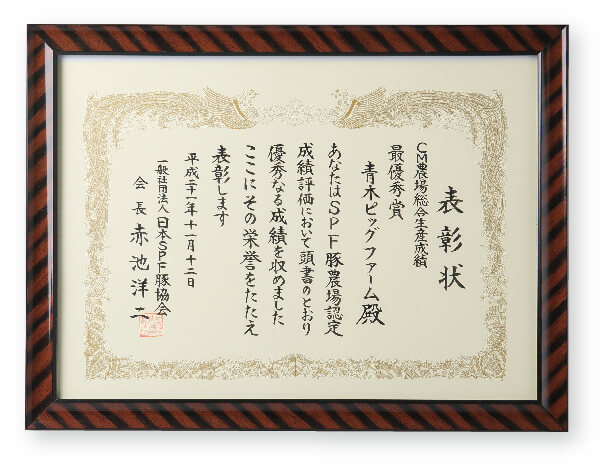 表彰状
CM農場総合生産成績
最優秀賞
青木ピッグファーム殿
あなたはSPF豚農場認定
成績評価において頭書のとおり
優秀なる成績を収めました
ここにその栄誉をたたえ
表彰します
平成二十一年十一月十二日
一般社団法人日本SPF豚協会
会長 赤池洋二